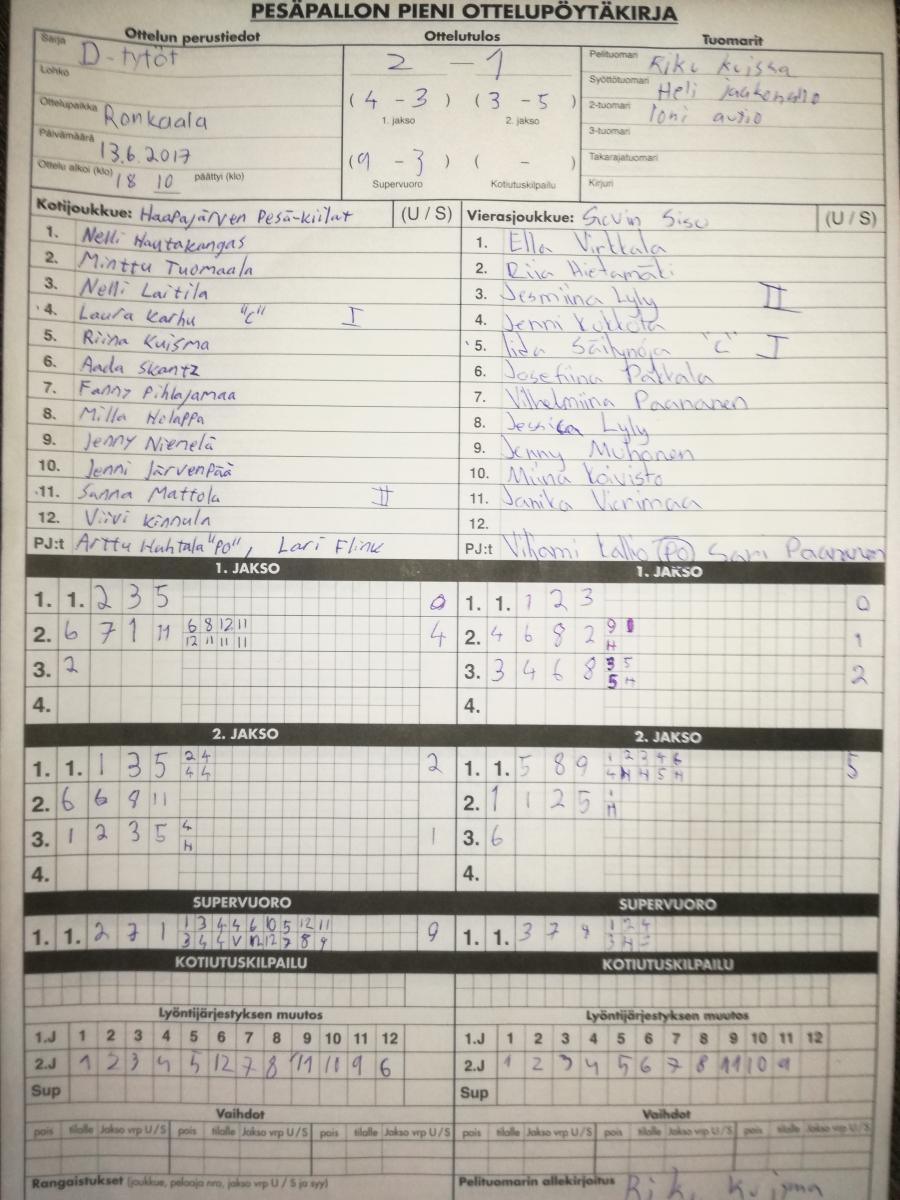 PESÄPALLON PIENI OTTELUPÖYTÄKIRJA
Ottelun perustiedot
Sarja D-tytöt
Lohko
Ottelupaikka Ronkaala
Päivämäärä 13.6.2017
Ottelu alkoi (klo) 18 10 päättyi (klo)
Ottelutulos
2 - 1
(4 - 3) (3 - 5)
1. jakso 2. jakso
(9 - 3) ( - )
Supervuoro Kotiutuskilpailu
Tuomarit
Pelituomari Riku Kuisma
Syöttötuomari Heli
2-tuomari Toni autio
3-tuomari
Takarajatuomari
Kirjuri
Kotijoukkue: Haapajärven Pesä-kiilat (U / S)
1. Nelli Hautakangas
2. Minttu Tuomaala
3. Nelli Laitila
4. Laura Karhu "C" I
5. Riina Kuisma
6. Aada Skantz
7. Fanny Pihlajamaa
8. Milla Holappa
9. Jenny Niemelä
10. Jenni Järvenpää
11. Sanna Mattola II
12. Viivi Kinnula
PJ:t Arttu Huhtala "PO", Lari Flink
Vierasjoukkue: Sievin Sisu (U / S)
1. Ella Virkkala
2. Riia Hietamäki
3. Jesmiina Lyly II
4. Jenni Kukkola
5. Iida Säilynoja "C" I
6. Josefiina Pakkala
7. Vilhelmiina Paananen
8. Jessica Lyly
9. Jenny Muhonen
10. Miina Koivisto
11. Janika Vierimaa
12.
PJ:t Viljami Kallio (PO) Sari Paananen
1. JAKSO
1. 1. 2 3 5 0
2. 6 7 1 11 6 8 12 11 4
12 11 11 11
3. 2
4.
1. JAKSO
1. 1. 1 2 3 0
2. 4 6 8 2 9 1
H
3. 3 4 6 8 3 5 2
5 H
4.
2. JAKSO
1. 1. 1 3 5 2 4 2
4 4
2. 6 6 8 11
3. 1 2 3 5 4 1
H
4.
2. JAKSO
1. 1. 5 8 9 1 2 3 4 6 5
4 H 4 5 H
2. 1 1 2 5 1
H
3. 6
4.
SUPERVUORO
1. 1. 2 7 1 1 3 4 4 6 10 5 12 11 9
3 4 4 V 12 12 7 8 9
SUPERVUORO
1. 1. 3 7 9 1 2 4
3 H -
KOTIUTUSKILPAILU
KOTIUTUSKILPAILU
Lyöntijärjestyksen muutos
1.J 1 2 3 4 5 6 7 8 9 10 11 12
2.J 1 2 3 4 5 12 7 8 11 10 9 6
Sup
Lyöntijärjestyksen muutos
1.J 1 2 3 4 5 6 7 8 9 10 11 12
2.J 1 2 3 4 5 6 7 8 11 10 9
Sup
Vaihdot
pois tilalle Jakso vrp U / S pois tilalle Jakso vrp U / S pois tilalle Jakso vrp U / S
Vaihdot
pois tilalle Jakso vrp U / S pois tilalle Jakso vrp U / S pois tilalle Jakso vrp U / S
Rangaistukset (joukkue, pelaaja nro, jakso vrp U / S ja syy)
Pelituomarin allekirjoitus Riku Kuisma